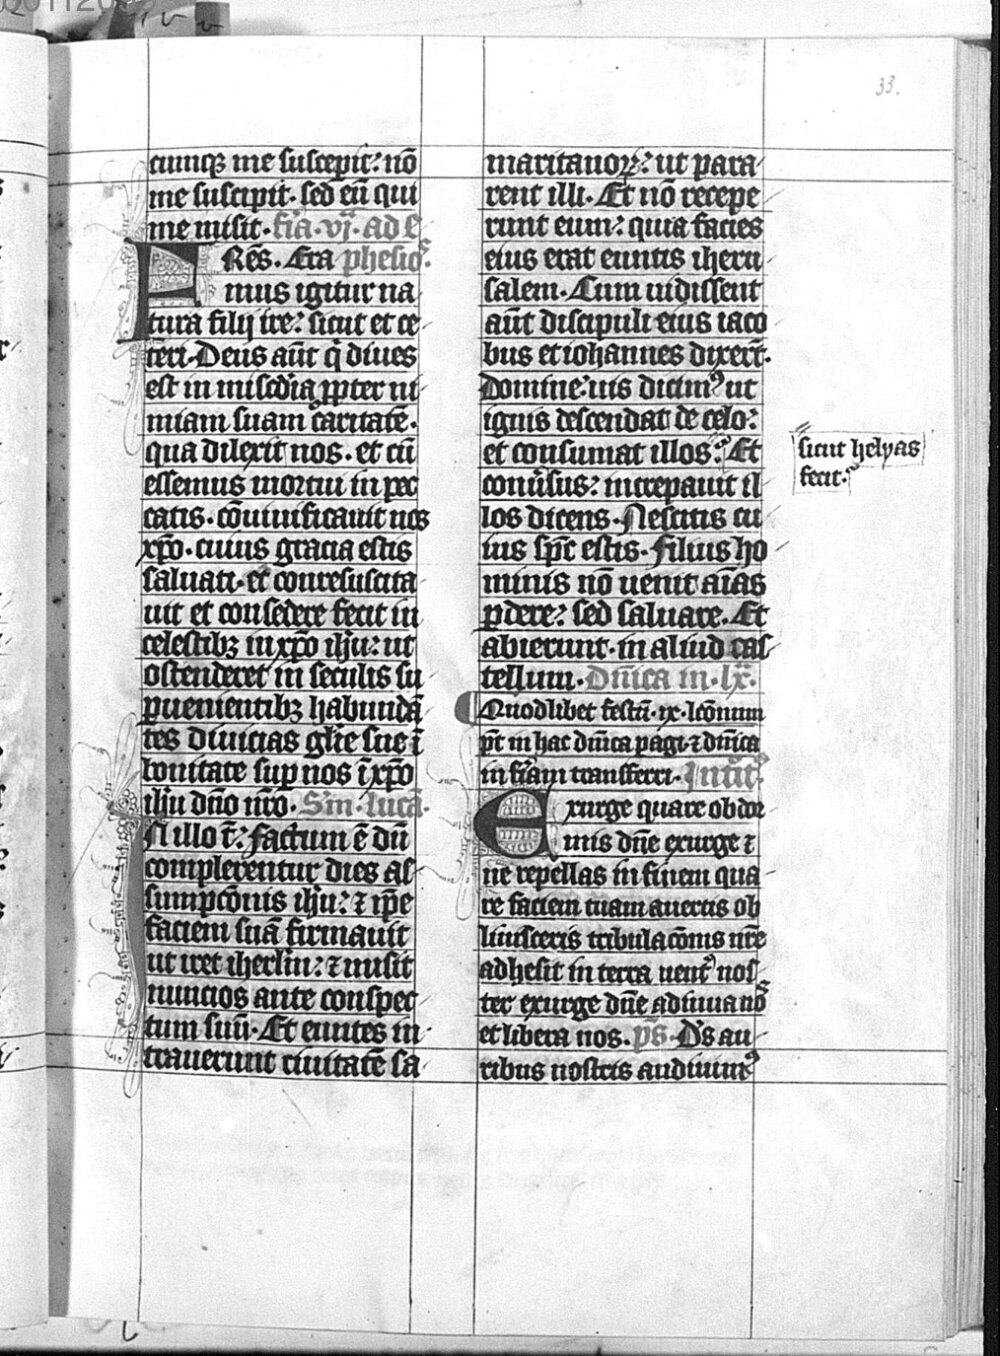 33.
cumq3 me susceperit: nō
me suscipit. sed eū qui
me misit. fria. vi. ad e
Rēs. Era phesios.
mus igitur na
tura filij ire: sicut et ce
teri. Deus aūt q diues
est in misc̄dia ꝓpter ni
miam suam caritatē.
qua dilexit nos. et cū
essemus mortui in pec
catis. cōuiuificauit nos
xp̄o. cuius gracia estis
saluati. et conresuscita
uit et consedere fecit in
celestib3 in xp̄o ihū: ut
ostenderet in seculis su
ꝑuenientib3 habundā
tes diuicias gl̄ie sue ī
bonitate sup nos ī xp̄o
ihū dn̄o nr̄o. Sm̄. lucā.
N illo t̄: factum ē dū
complerentur dies as
sumpc̄onis ihū: ⁊ ip̄e
faciem suā firmauit
ut iret iherlm̄: ⁊ misit
nuncios ante conspec
tum suū. Et euntes in
trauerunt ciuitatē sa
maritanoꝝ: ut para
rent illi. Et nō recepe
runt eum: quia facies
eius erat euntis iheru
salem. Cum uidissent
aūt discipuli eius iaco
bus et iohannes dixerūt.
Domine: uis dicimꝰ ut
ignis descendat de celo:
et consumat illos: Et
sicut helyas
fecit.
conuersus: increpauit il
los dicens. Nescitis cu
ius sp̄c estis. filius ho
minis nō uenit aīas
ꝑdere: sed saluare. Et
abierunt in aliud cas
tellum. Dn̄ica in. lx.
Quodlibet festū. ix. lc̄onum
pt̄ in hac dn̄ica pagi. ⁊ dn̄ica
in friam transferri. Introit.
Exurge quare obdor
mis dn̄e exurge ⁊
ne repellas in finem qua
re faciem tuam auertis ob
liuisceris tribulac̄onis nr̄e
adhesit in terra uent̾ nos
ter exurge dn̄e adiuua nos
et libera nos. p̄s. Ds au
ribus nostris audiuimꝰ